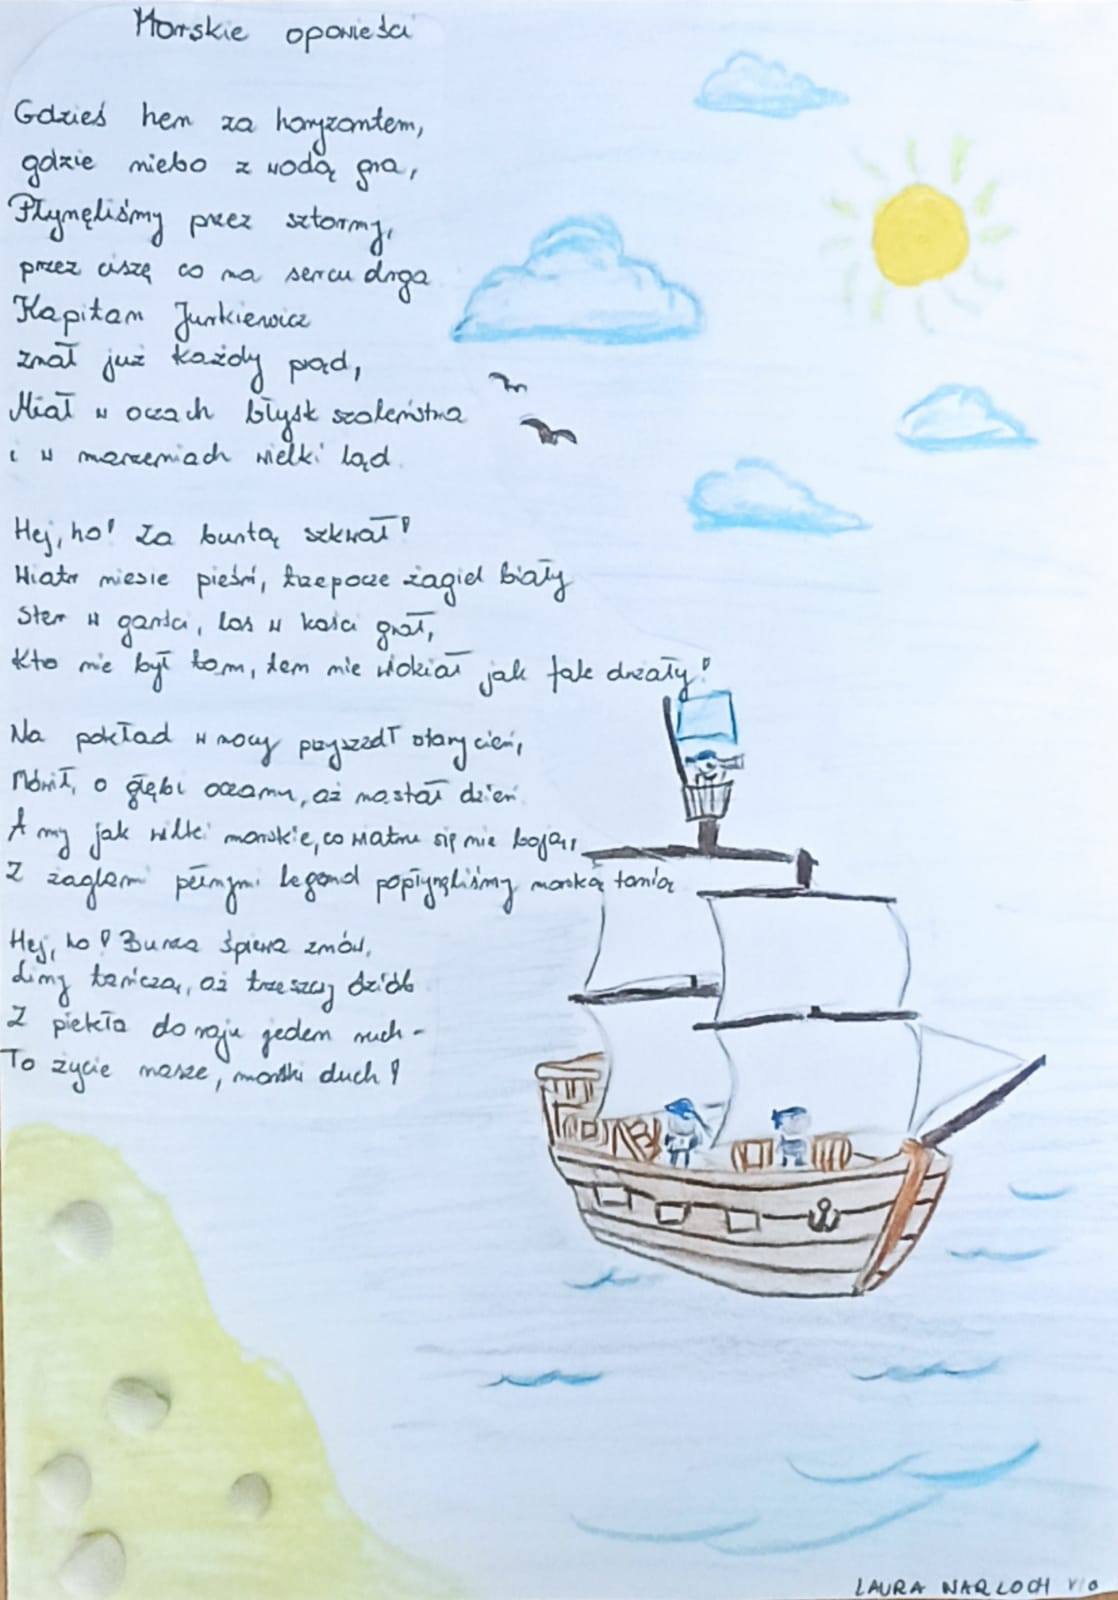 Morskie opowieści
Gdzieś hen za horyzontem,
gdzie niebo z wodą gra,
Płynęliśmy przez sztormy,
przez ciszę co na sercu drga
Kapitan Jurkiewicz
znał już każdy prąd,
Miał w oczach błysk szaleństwa
i w marzeniach wielki ląd.
Hej, ho! Za burtą szkwał!
Wiatr niesie pieśń, trzepocze żagiel biały
Ster w garści, los w kości grał,
Kto nie był tam, ten nie widział jak fale drżały!
Na pokład w nocy przyszedł stary cień,
Mówił, o głębi oczamu, aż nastał dzień.
A my jak wilki morskie, co wiatru się nie boją,
Z żaglami pełnymi legend popłynęliśmy morską tonią
Hej, ho! Burza śpiewa znów,
Liny tańczą, aż trzeszczy dziób
Z piekła do raju jeden ruch -
To życie nasze, morski duch!
LAURA WARLOCH